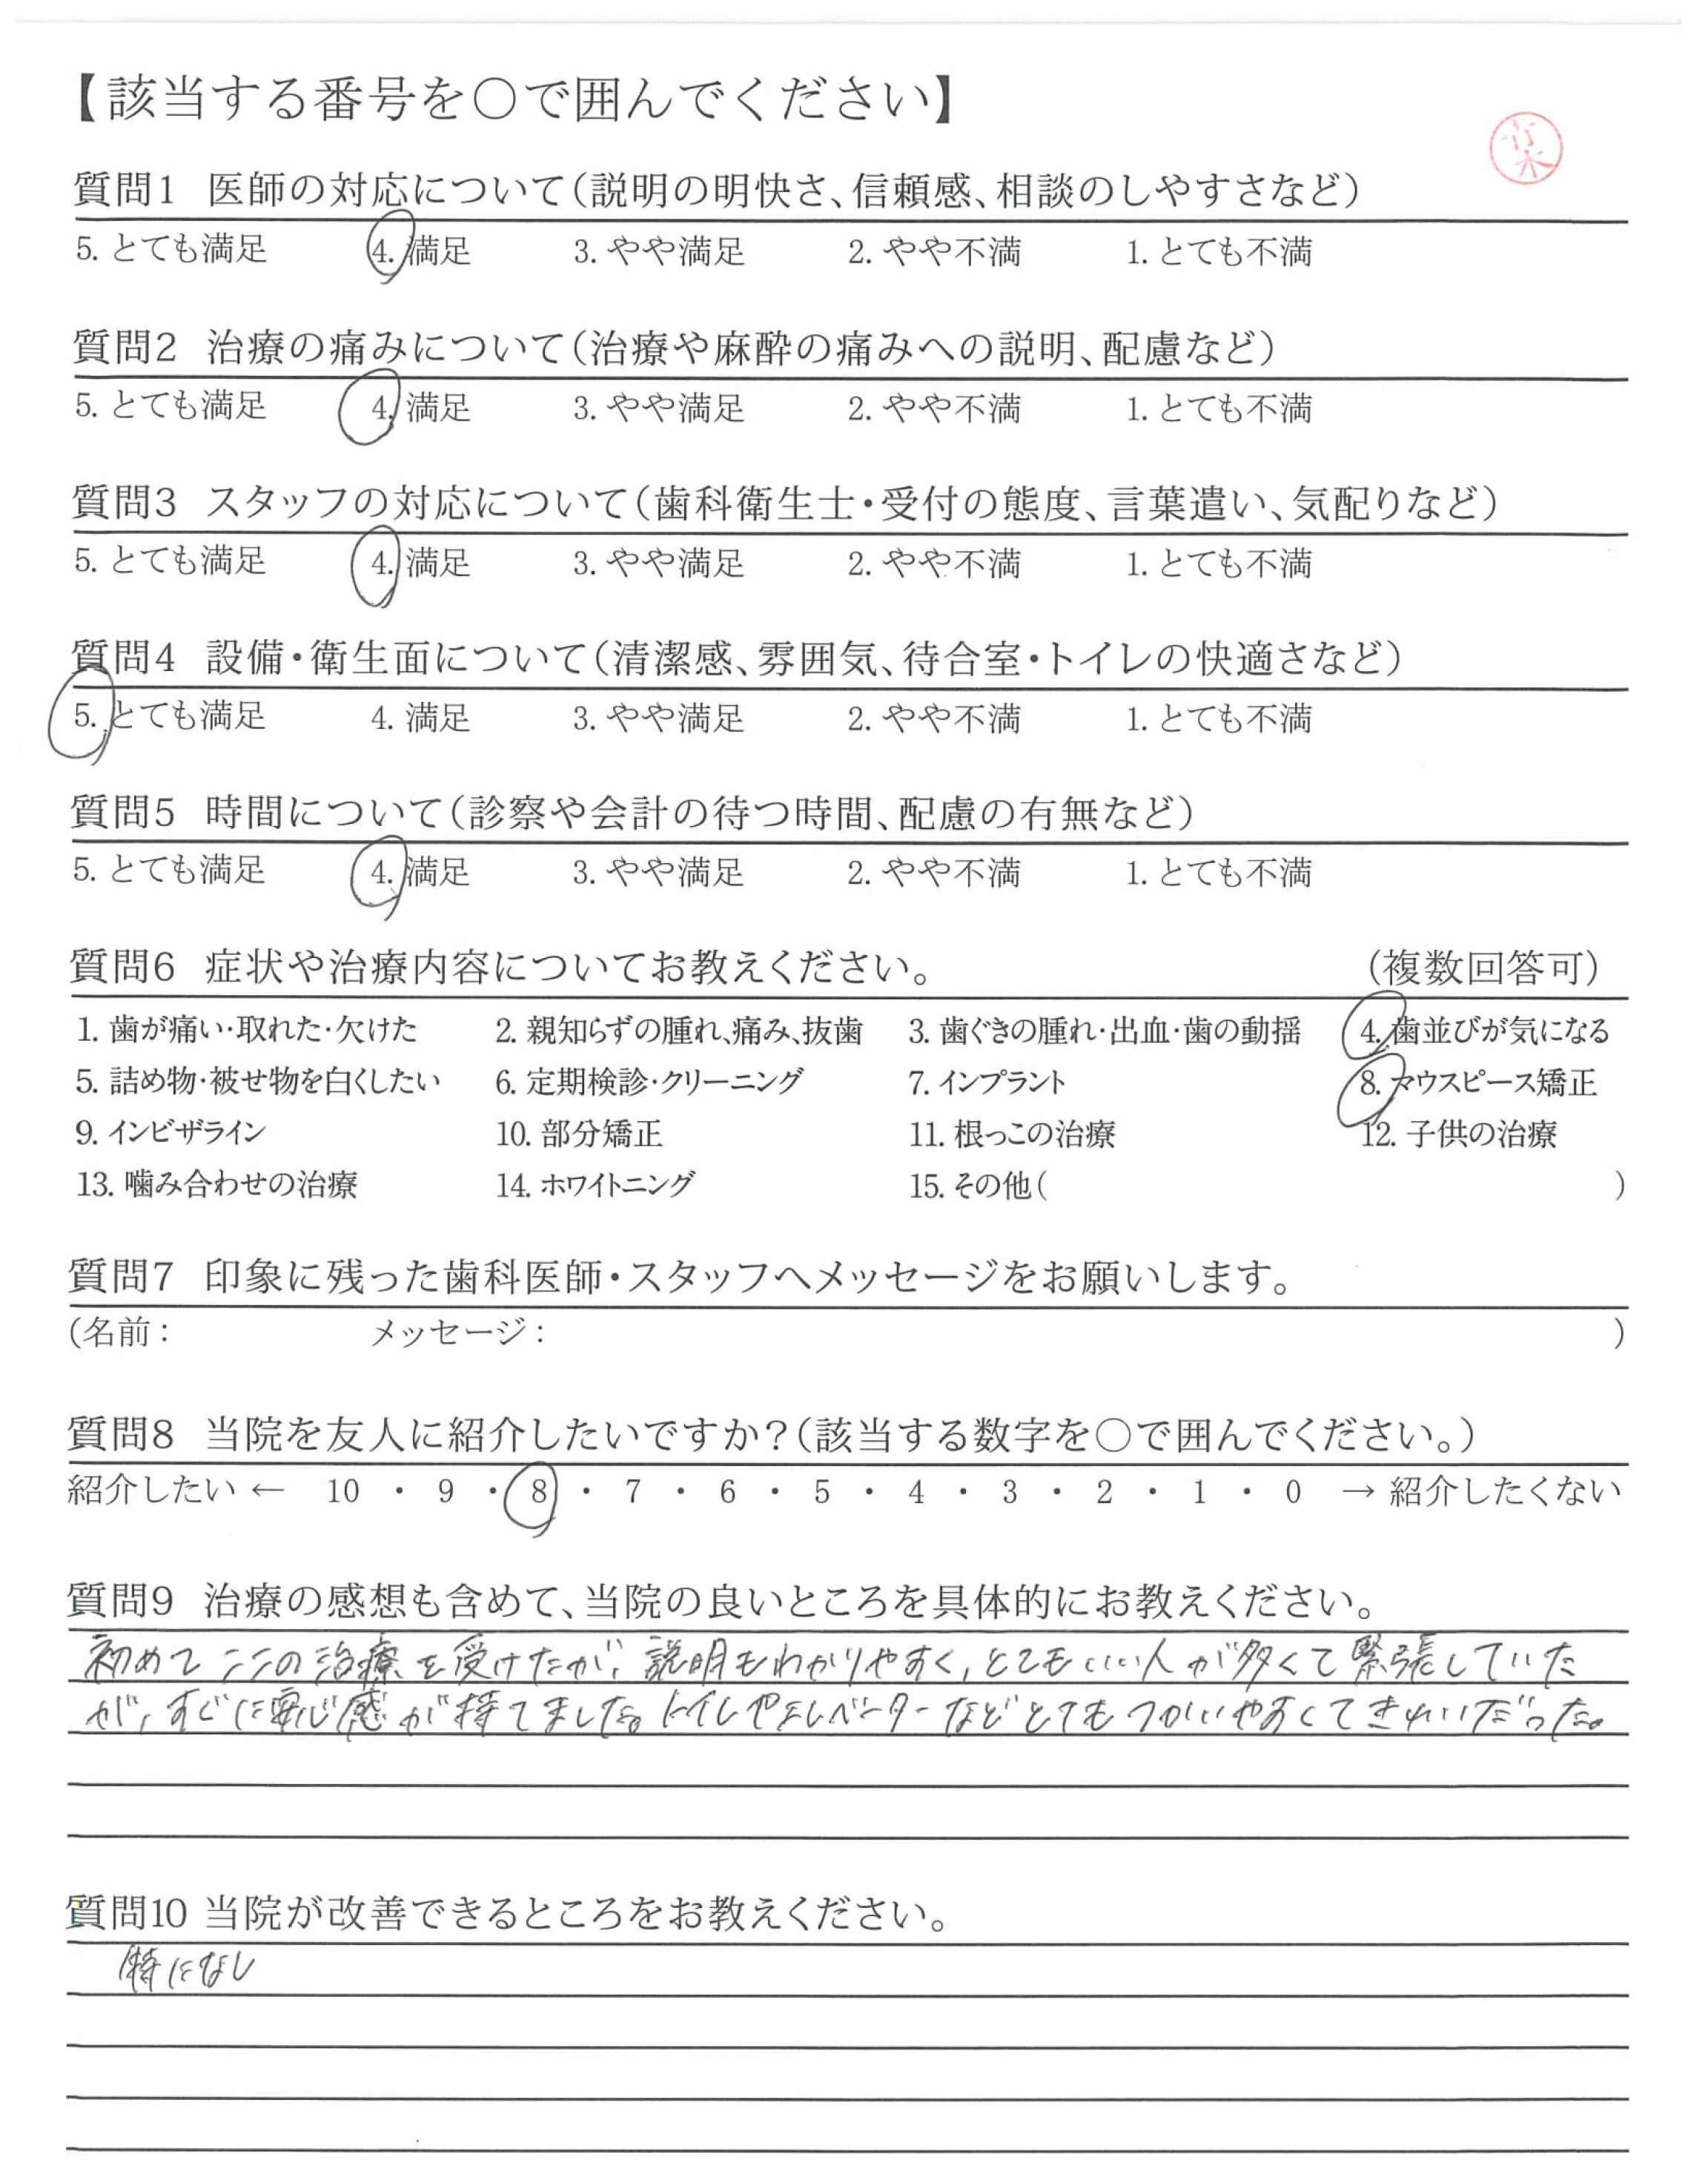 【該当する番号を〇で囲んでください】
質問1 医師の対応について（説明の明快さ、信頼感、相談のしやすさなど）
5. とても満足 4. 満足 3. やや満足 2. やや不満 1. とても不満
質問2 治療の痛みについて（治療や麻酔の痛みへの説明、配慮など）
5. とても満足 4. 満足 3. やや満足 2. やや不満 1. とても不満
質問3 スタッフの対応について（歯科衛生士・受付の態度、言葉遣い、気配りなど）
5. とても満足 4. 満足 3. やや満足 2. やや不満 1. とても不満
質問4 設備・衛生面について（清潔感、雰囲気、待合室・トイレの快適さなど）
5. とても満足 4. 満足 3. やや満足 2. やや不満 1. とても不満
質問5 時間について（診察や会計の待つ時間、配慮の有無など）
5. とても満足 4. 満足 3. やや満足 2. やや不満 1. とても不満
質問6 症状や治療内容についてお教えください。 （複数回答可）
1. 歯が痛い・取れた・欠けた 2. 親知らずの腫れ、痛み、抜歯 3. 歯ぐきの腫れ・出血・歯の動揺 4. 歯並びが気になる
5. 詰め物・被せ物を白くしたい 6. 定期検診・クリーニング 7. インプラント 8. マウスピース矯正
9. インビザライン 10. 部分矯正 11. 根っこの治療 12. 子供の治療
13. 噛み合わせの治療 14. ホワイトニング 15. その他（ ）
質問7 印象に残った歯科医師・スタッフへメッセージをお願いします。
（名前： メッセージ： ）
質問8 当院を友人に紹介したいですか？（該当する数字を〇で囲んでください。）
紹介したい ← 10 ・ 9 ・ 8 ・ 7 ・ 6 ・ 5 ・ 4 ・ 3 ・ 2 ・ 1 ・ 0 → 紹介したくない
質問9 治療の感想も含めて、当院の良いところを具体的にお教えください。
初めてここの治療を受けたが、説明もわかりやすく、とてもいい人が多くて緊張していた
が、すぐに安心感が持てました。トイレやエレベーターなどとてもつかいやすくてきれいだった。
質問10 当院が改善できるところをお教えください。
特になし